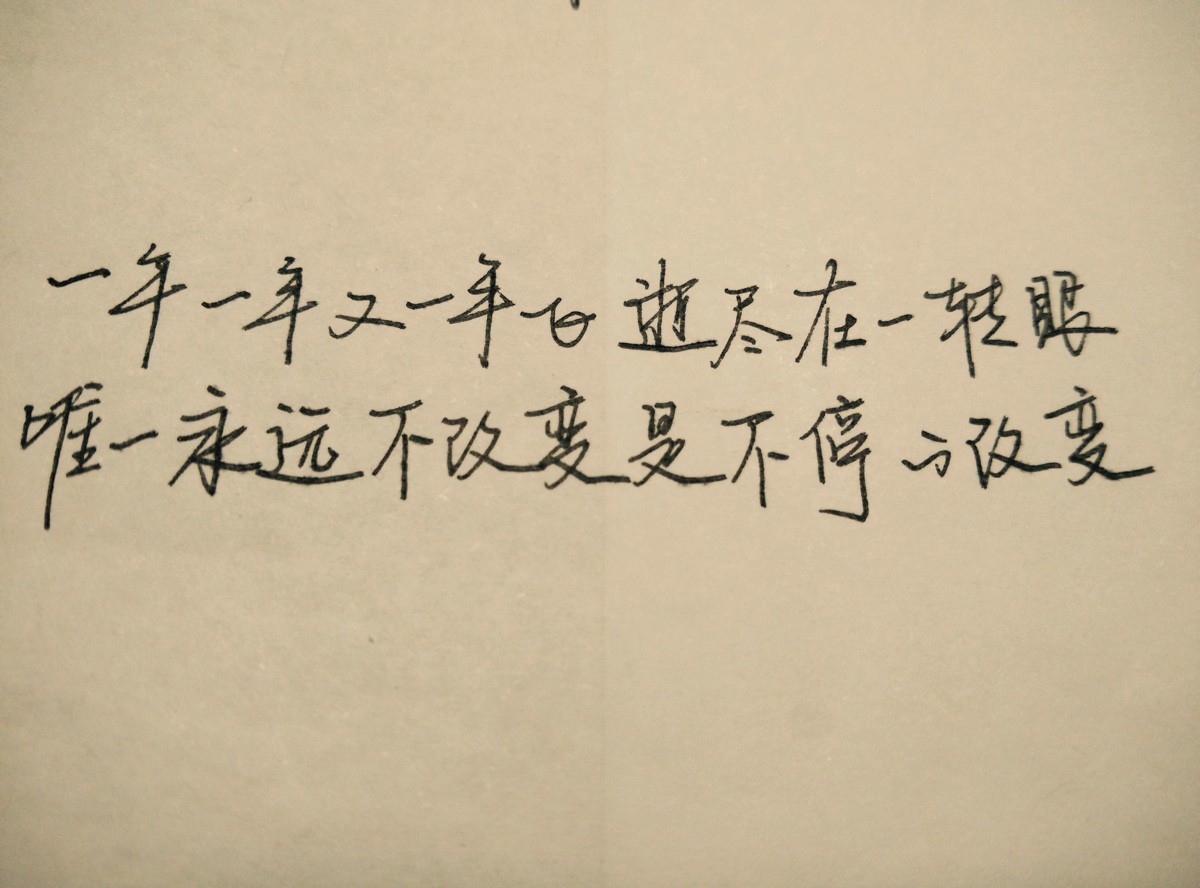 一年一年又一年飞逝尽在一转眼
唯一永远不改变是不停的改变